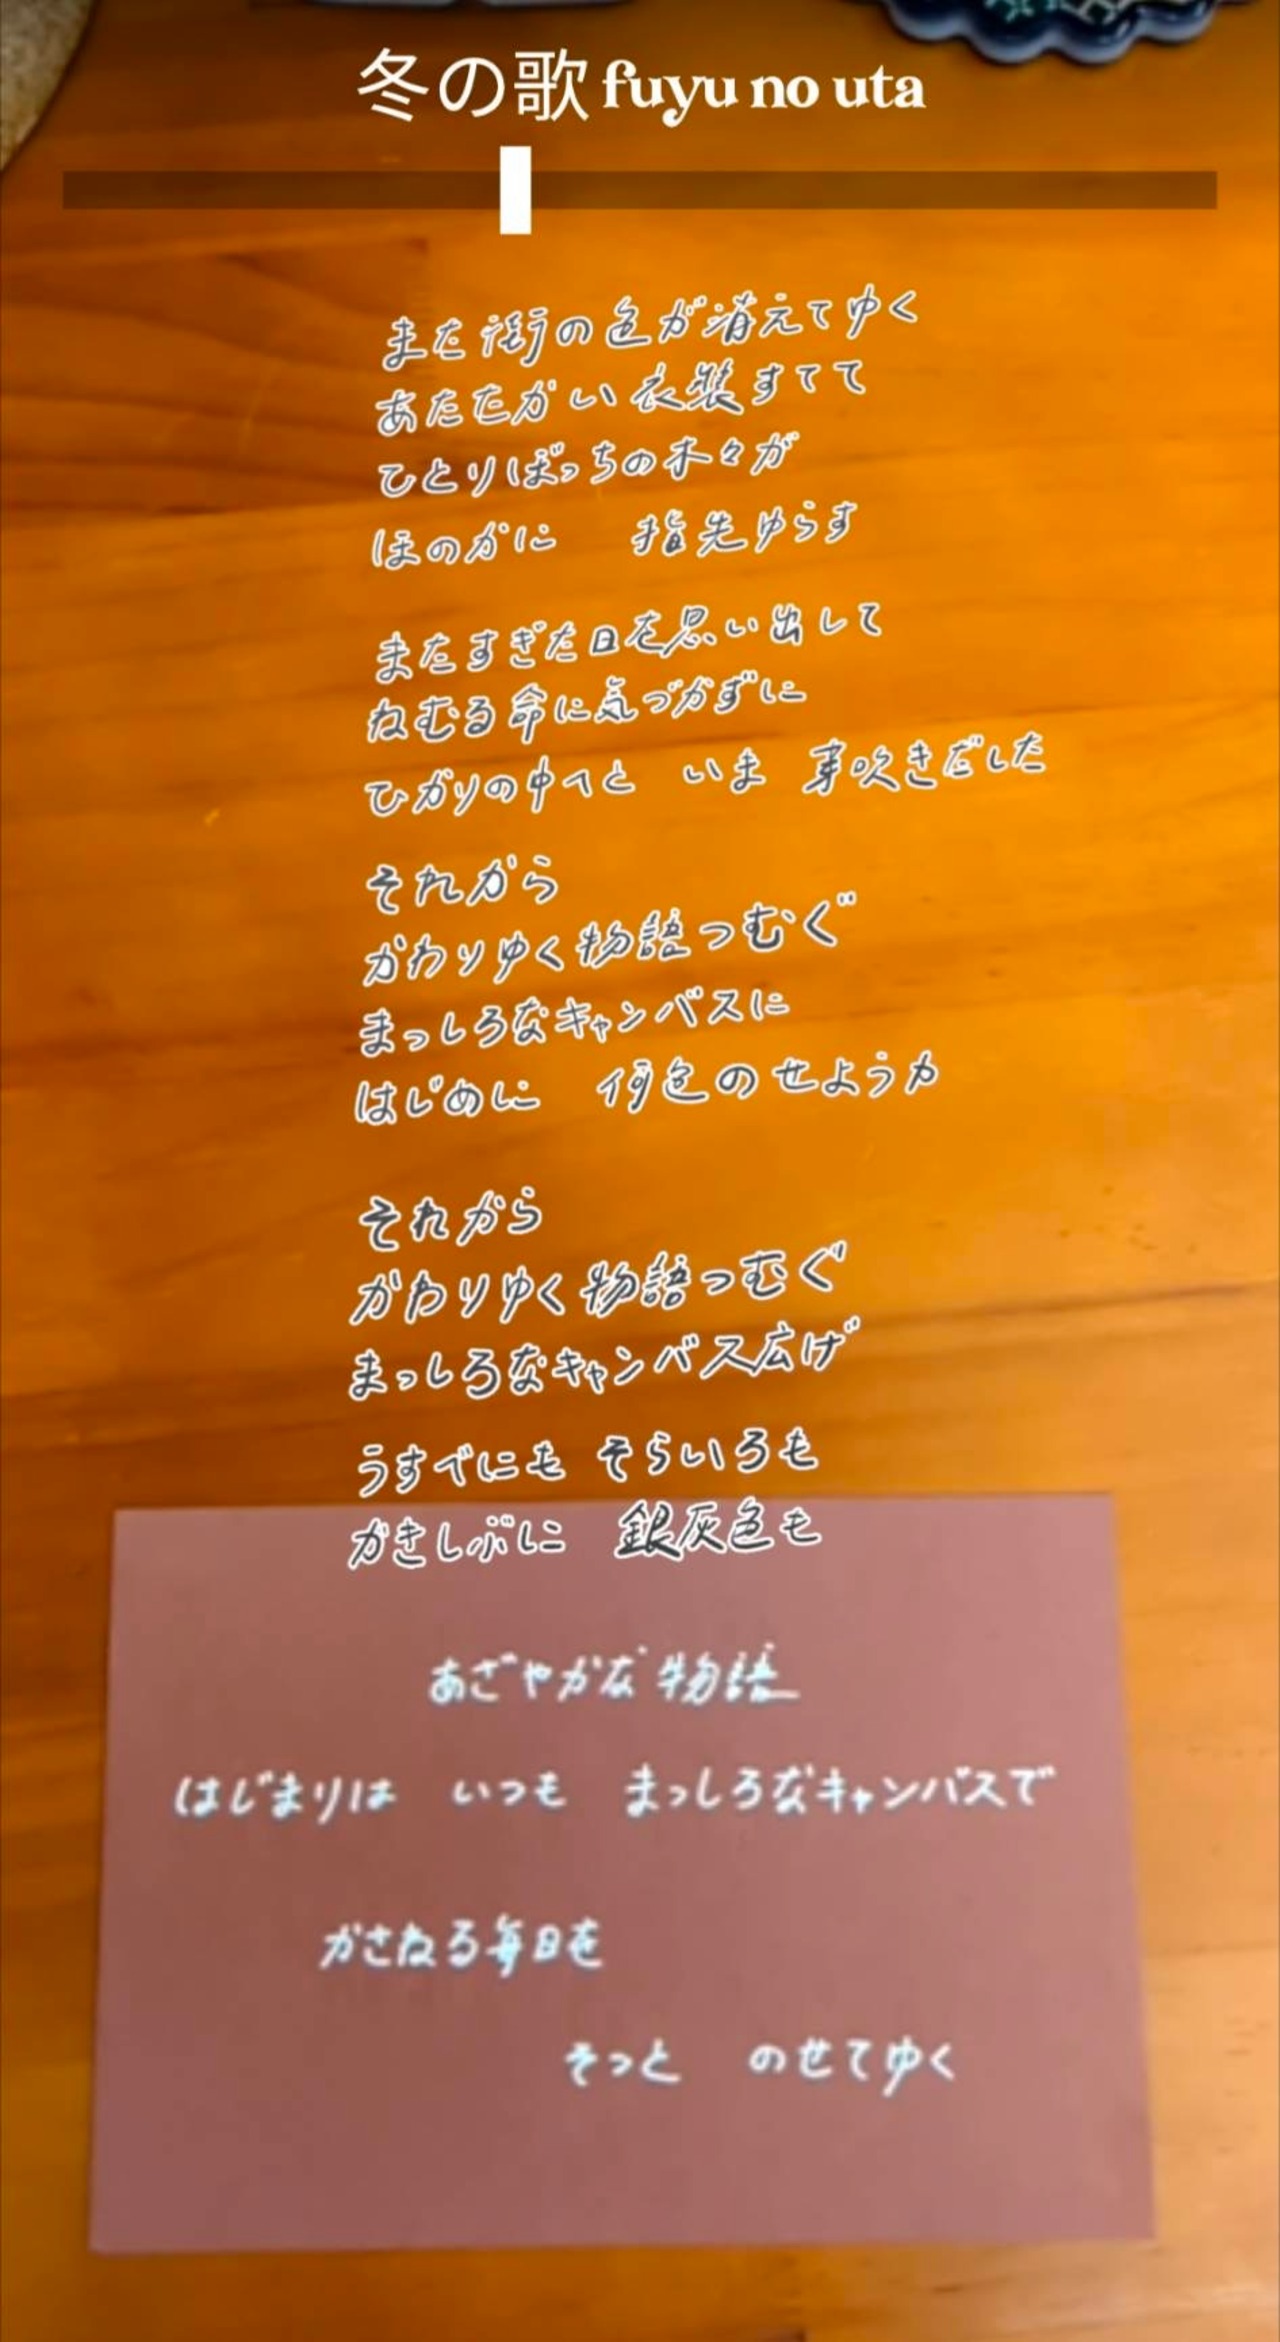 冬の歌 fuyu no uta
また街の色が消えてゆく
あたたかい衣装すてて
ひとりぼっちの木々が
ほのかに　指先ゆらす
またすぎた日を思い出して
ねむる命に気づかずに
ひかりの中へと　いま　芽吹きだした
それから
かわりゆく物語つむぐ
まっしろなキャンバスに
はじめに　何色のせようか
それから
かわりゆく物語つむぐ
まっしろなキャンバス広げ
うすべにも　そらいろも
かきしぶに　銀灰色も
あざやかな物語
はじまりは　いつも　まっしろなキャンバスで
かさねる毎日を
そっと　のせてゆく